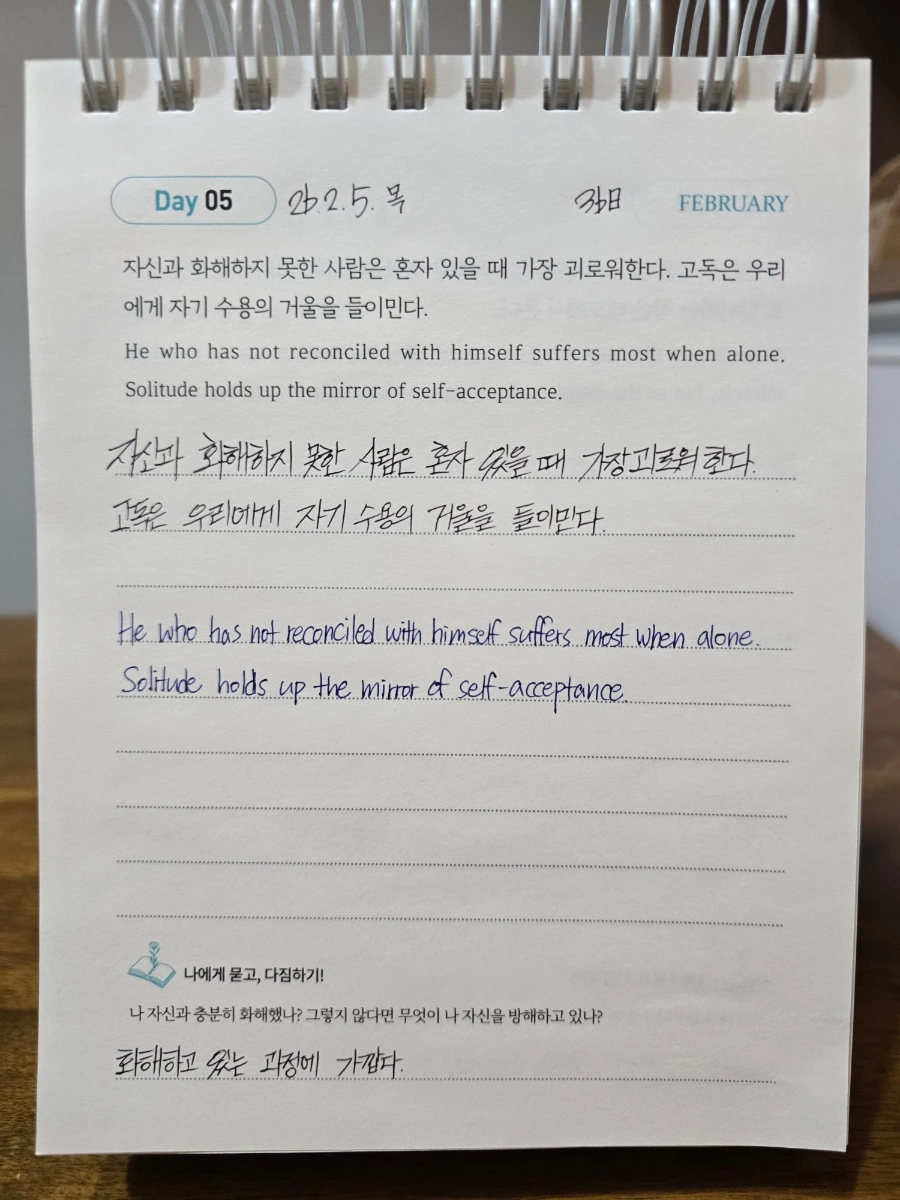 Day 05 26. 2. 5. 목 36日 FEBRUARY
자신과 화해하지 못한 사람은 혼자 있을 때 가장 괴로워한다. 고독은 우리
에게 자기 수용의 거울을 들이민다.
He who has not reconciled with himself suffers most when alone.
Solitude holds up the mirror of self-acceptance.
자신과 화해하지 못한 사람은 혼자 있을 때 가장 괴로워한다.
고독은 우리에게 자기 수용의 거울을 들이민다.
He who has not reconciled with himself suffers most when alone.
Solitude holds up the mirror of self-acceptance.
나에게 묻고, 다짐하기!
나 자신과 충분히 화해했나? 그렇지 않다면 무엇이 나 자신을 방해하고 있나?
화해하고 있는 과정에 가깝다.